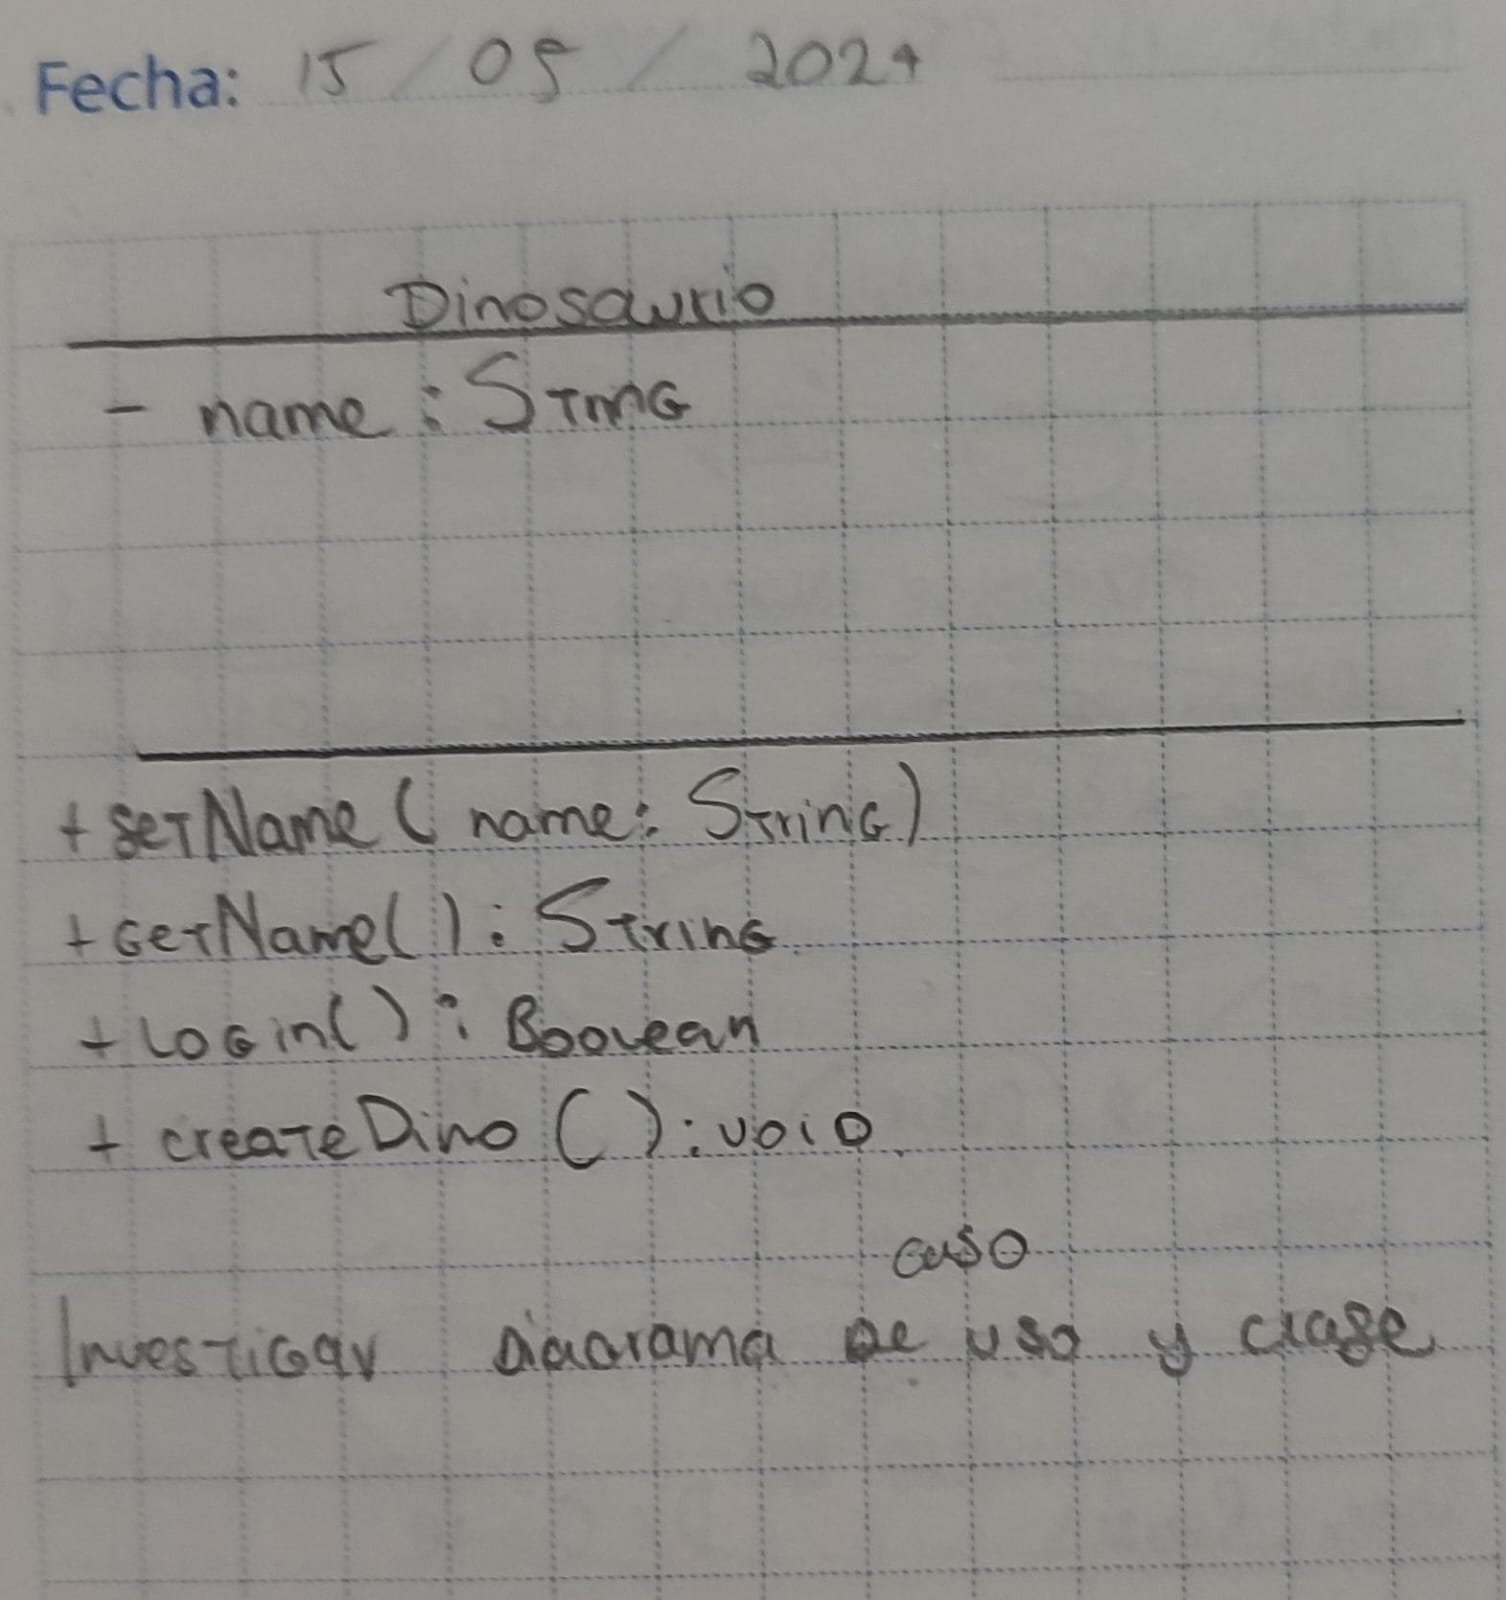 Fecha: 15 / 05 / 2024
Dinosaurio
- name : String
+ setName ( name: String)
+ getName( ) : String
+ Login( ) : Boolean
+ createDino ( ) : void
caso
Investigar diagrama de uso y clase